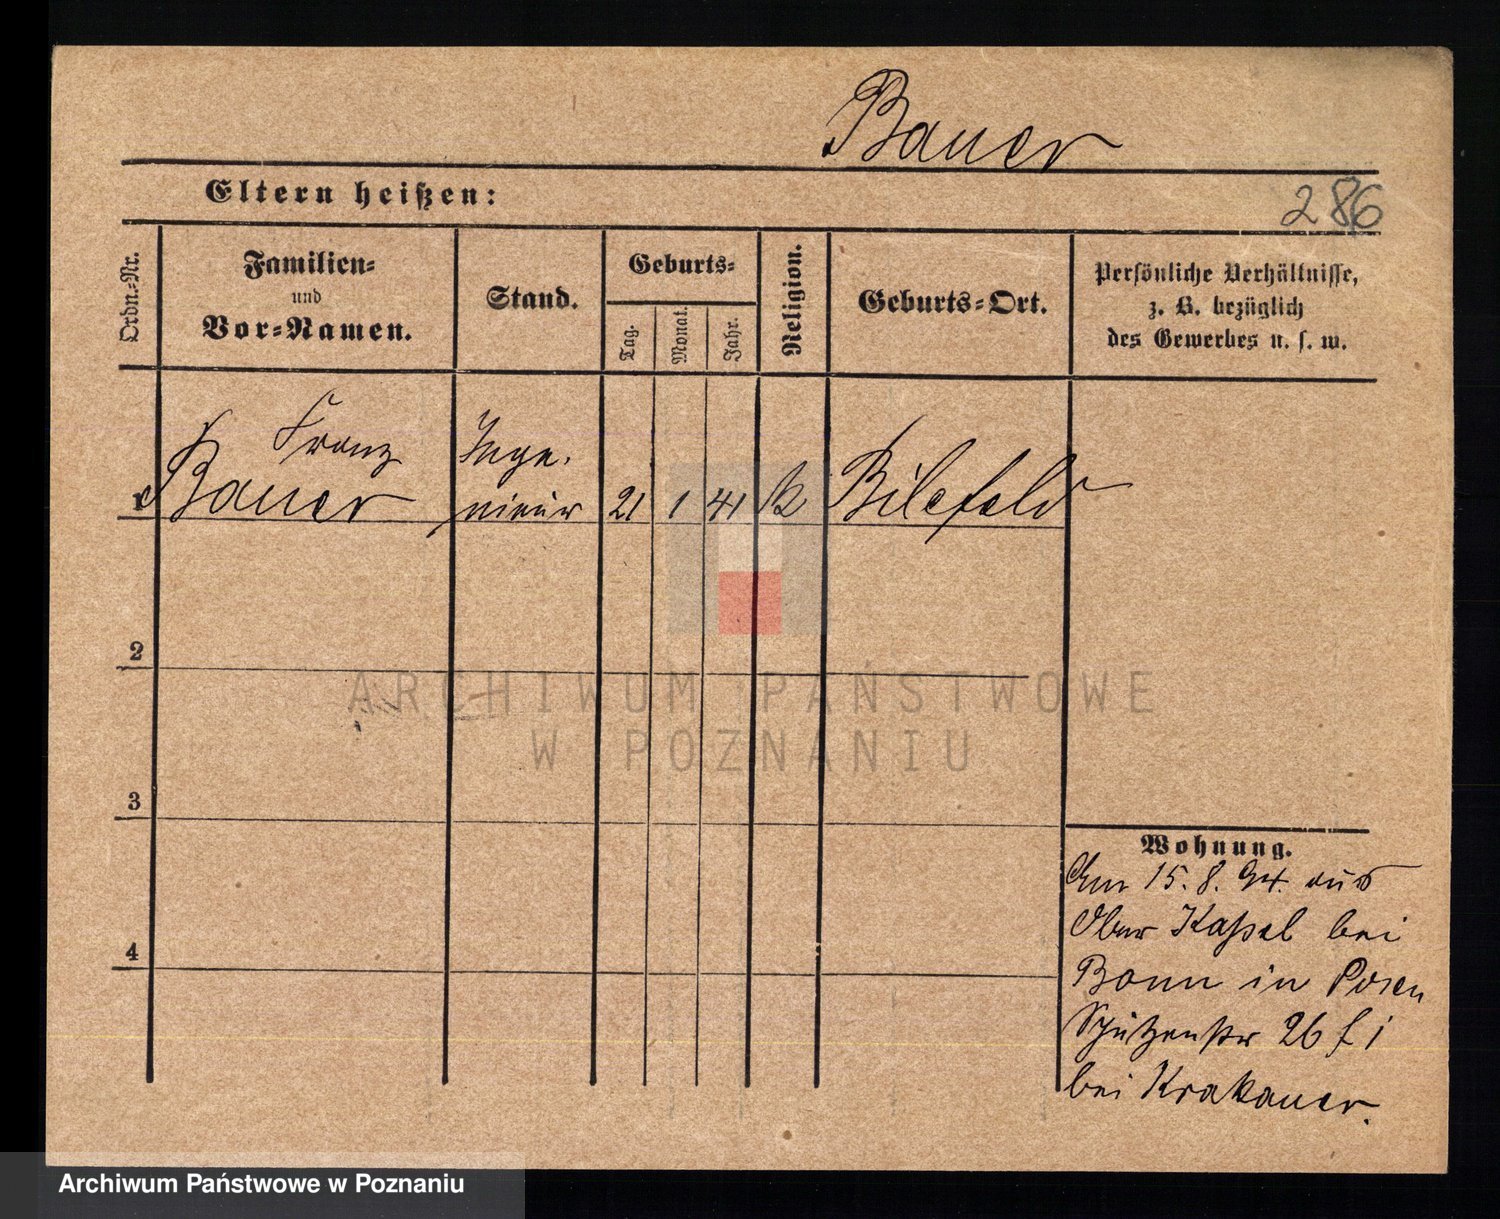 Bauer
Eltern heißen:
286
Ordn.-Nr.
Familien-
und
Vor-Namen.
Stand.
Geburts-
Tag.
Monat.
Jahr.
Religion.
Geburts-Ort.
Persönliche Verhältnisse,
z. B. bezüglich
des Gewerbes u. s. w.
Franz
Inge.
1 Bauer nieur 21 1 41 k Bilefeld
2
3
4
Wohnung.
Am 15. 8. 94. aus
Ober Kaßel bei
Bonn in Posen
Schützenstr 26 f i
bei Krakauer.
ARCHIWUM PAŃSTWOWE
W POZNANIU
Archiwum Państwowe w Poznaniu